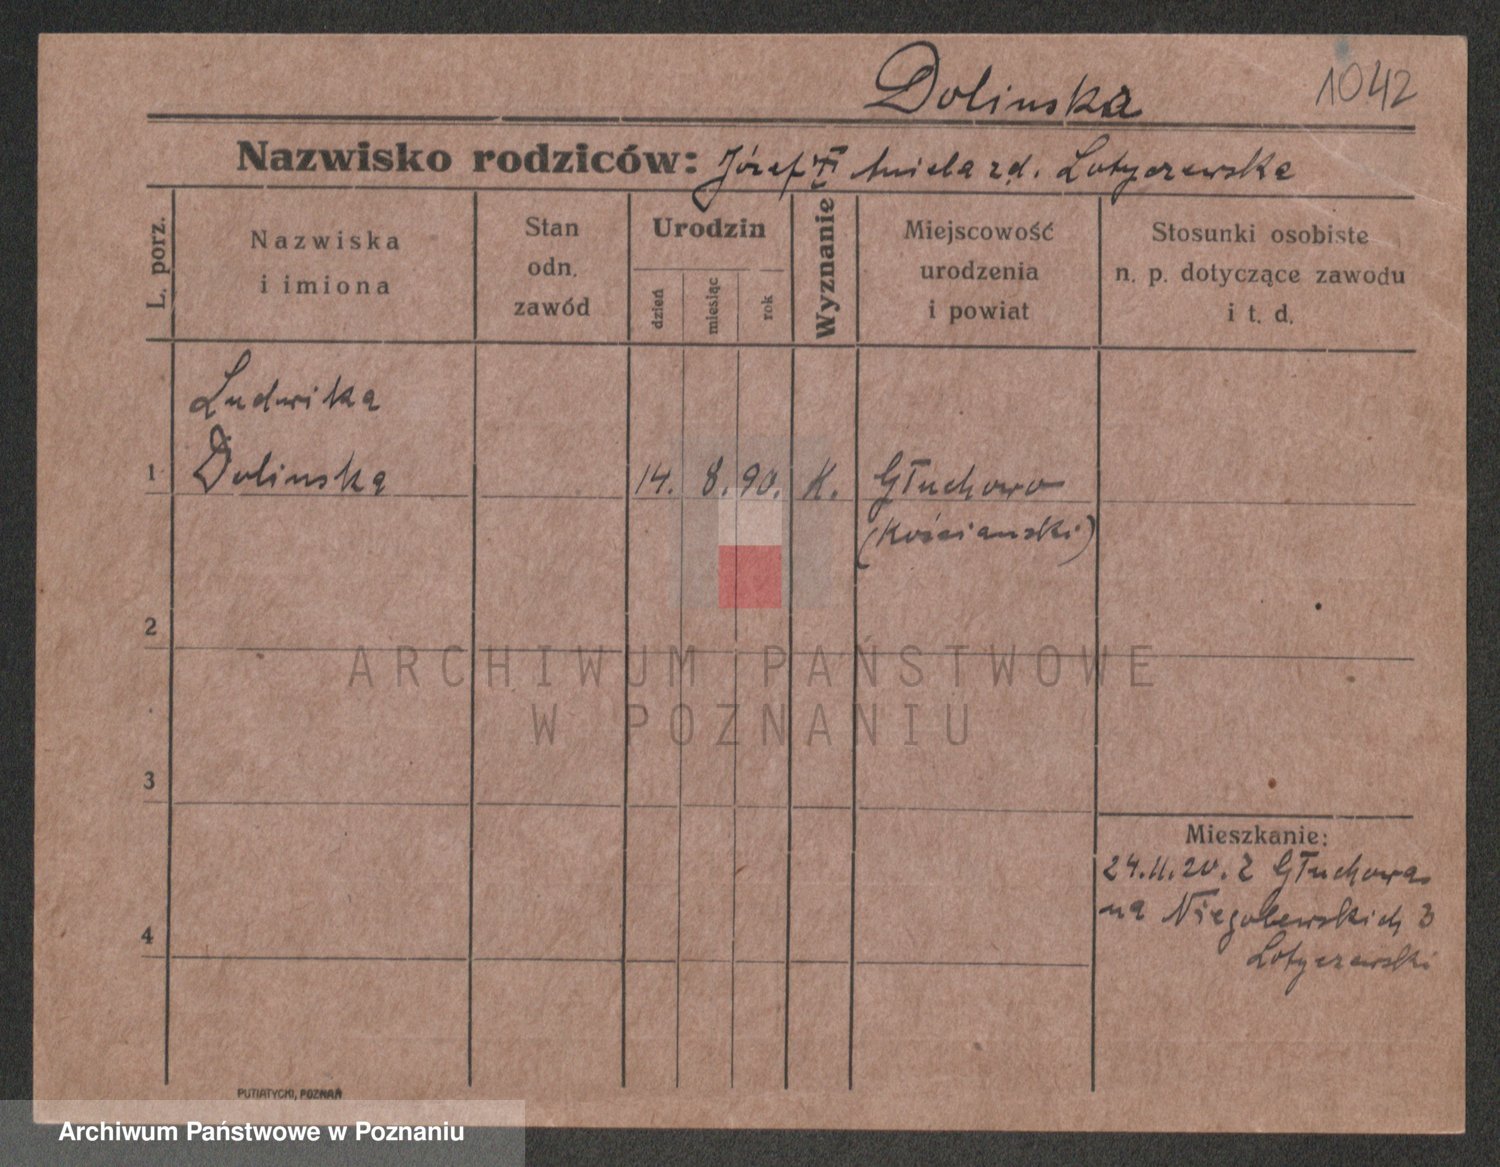 Dolinska
1042
Nazwisko rodziców: Józef Aniela zd. Lotyczewska
L. porz.
Nazwiska
i imiona
Stan
odn.
zawód
Urodzin
dzień
miesiąc
rok
Wyznanie
Miejscowość
urodzenia
i powiat
Stosunki osobiste
n. p. dotyczące zawodu
i t. d.
Ludwika
1 Dolinska 14. 8. 90. K. Głuchowo
(Kościanski)
2
ARCHIWUM PAŃSTWOWE
W POZNANIU
3
Mieszkanie:
24.11.20. z Głuchowa
na Niegolewskich 3
Lotyczewski
4
PUTIATYCKI, POZNAŃ
Archiwum Państwowe w Poznaniu